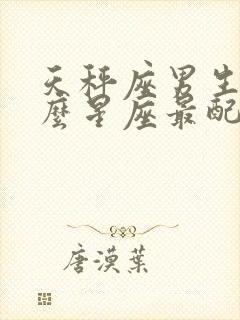 天秤座男生
麼星座最配
唐漠葉